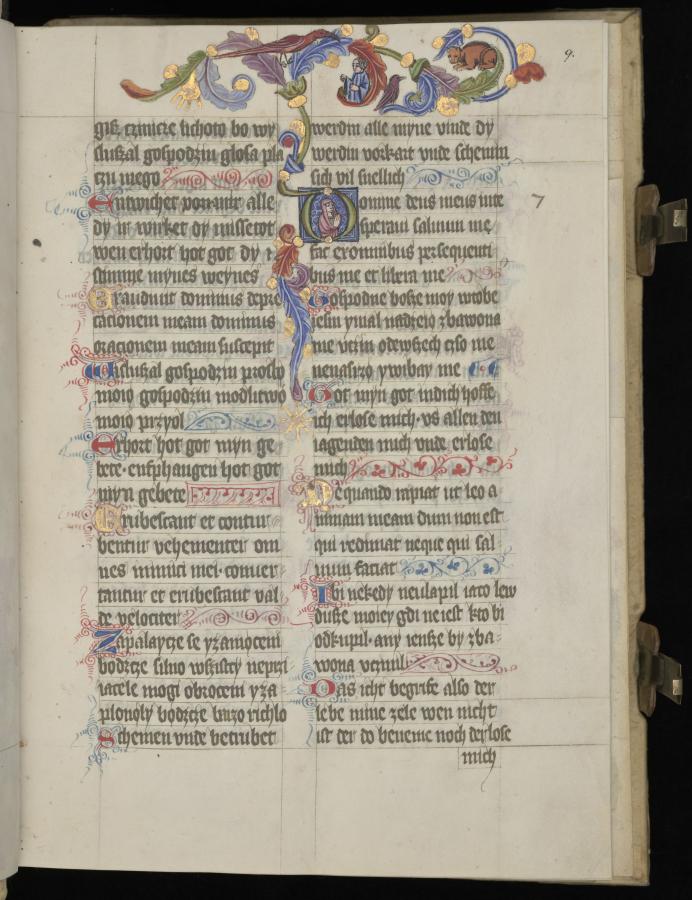 9.
gisz czinicze lichoto bo wy
sluszal gospodzin glosa pla
czu mego
Entwichet von mir alle
dy ir wirket dy missetot
wen erhort hot got dy
stimme mynes weynes
Exaudiuit dominus depre
cacionem meam dominus
oracionem meam suscepit
Usluszal gospodzin prosby
moio gospodzin modlitwo
moio przyol
Erhort hot got myn ge
bete enphangen hot got
myn gebete
Erubescant et contur
bentur vehementer om
nes inimici mei conuer
tantur et erubescant val
de velociter
Zapalaycze se y zamoceni
bodzcze silno wszistcy neprzi
iacele mogi obroceni y za
plonoly bodzcze barzo richlo
Schemen vnde betrubet
werdin alle myne vinde dy
werdin vorkart vnde schemin
sich vil snellich
Domine deus meus in te
speraui saluum me
fac ex omnibus persequenti
bus me et libera me
7
Gospodne bosze moy w tobe
iesm ymal nadzeio zbawona
me vczin od wszech czso me
nenaszro y wibaw me
Got myn got in dich hoffe
ich erlose mich vs allen den
iagenden mich vnde erlose
mich
Ne quando rapiat ut leo a
nimam meam dum non est
qui redimat neque qui sal
uum faciat
Ibi nekedy neulapil iaco lew
dusze moiey gdi ne iest kto bi
odkupil any iensze by zba
wona vczinil
Das icht begrife also der
lebe mine zele wen nicht
ist der do beneme noch derlose
mich